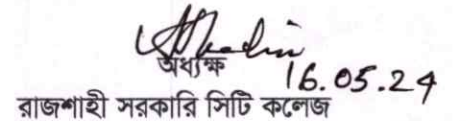 অধ্যক্ষ
16.05.24
রাজশাহী সরকারি সিটি কলেজ